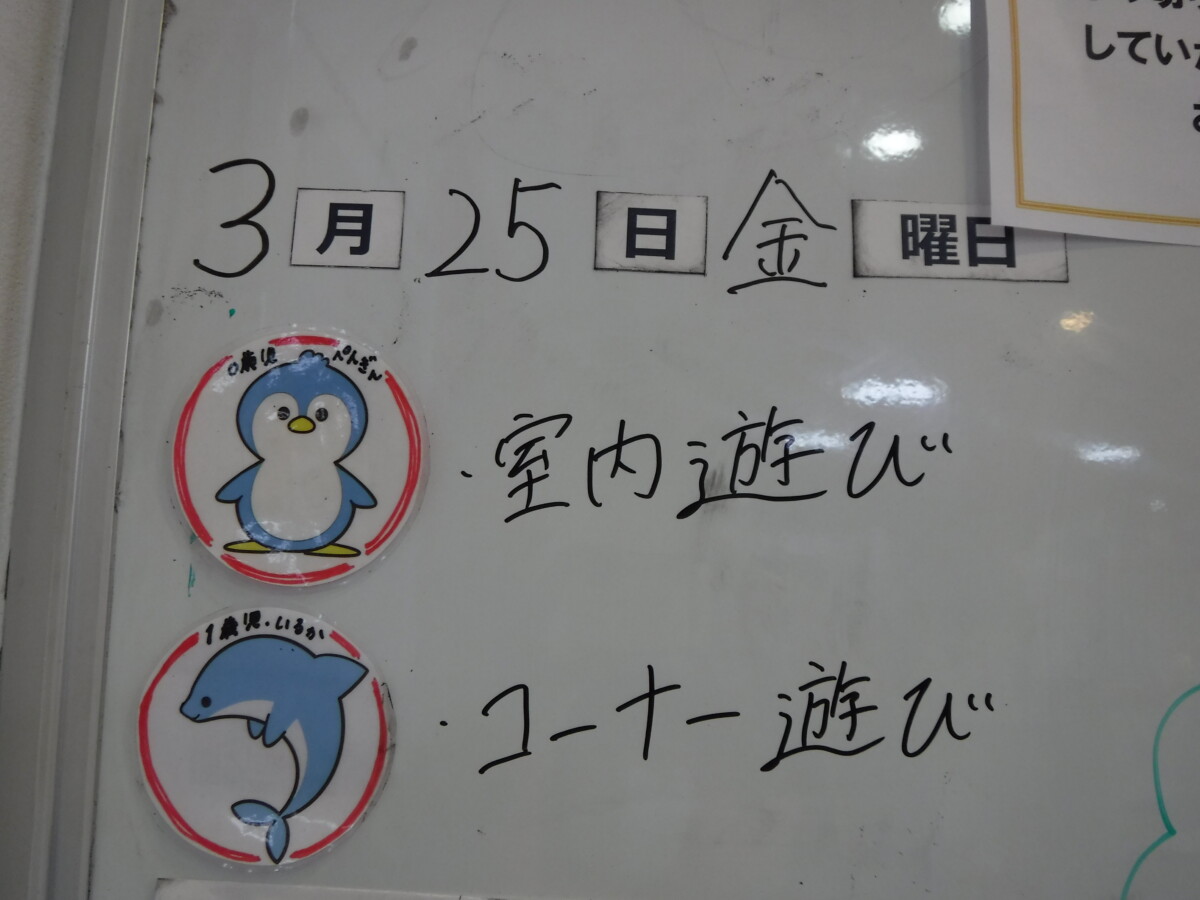 していた
3月25日金曜日
0歳児 ぺんぎん
・室内遊び
1歳児・いるか
・コーナー遊び